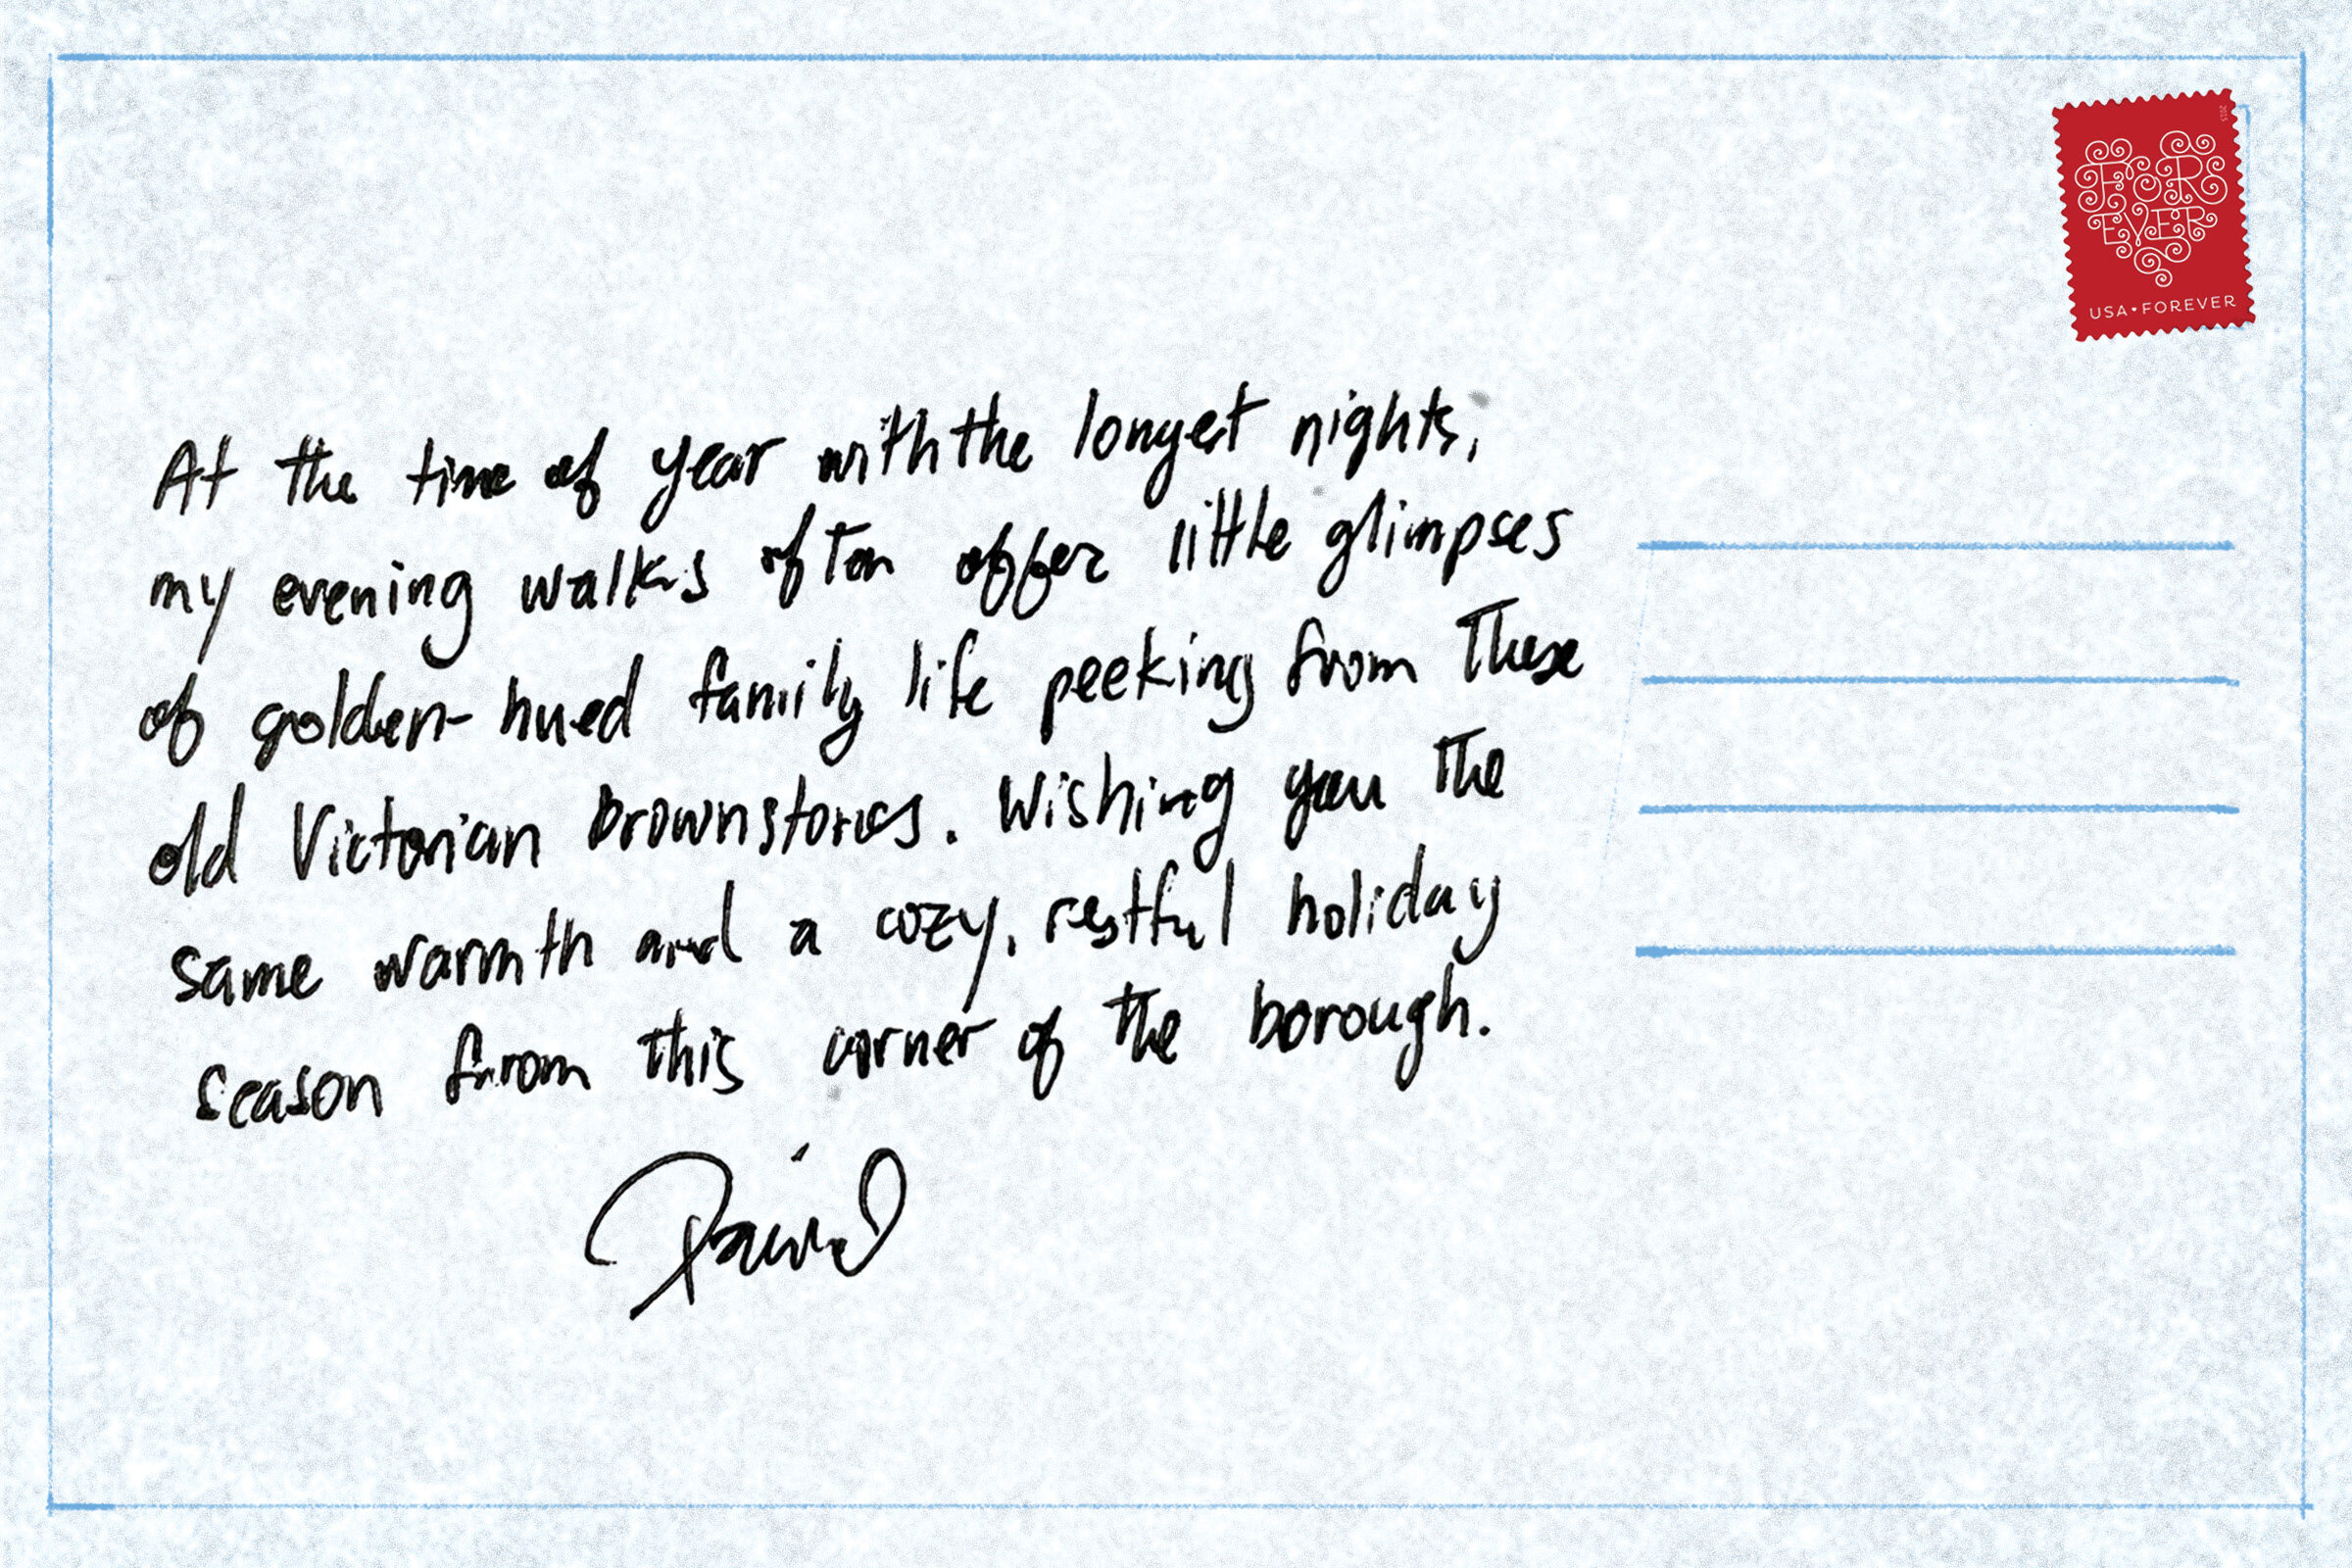 FOR
EVER
USA • FOREVER
2015
At the time of year with the longest nights,
my evening walks often offer little glimpses
of golden-hued family life peeking from these
old Victorian brownstones. Wishing you the
same warmth and a cozy, restful holiday
season from this corner of the borough.
David